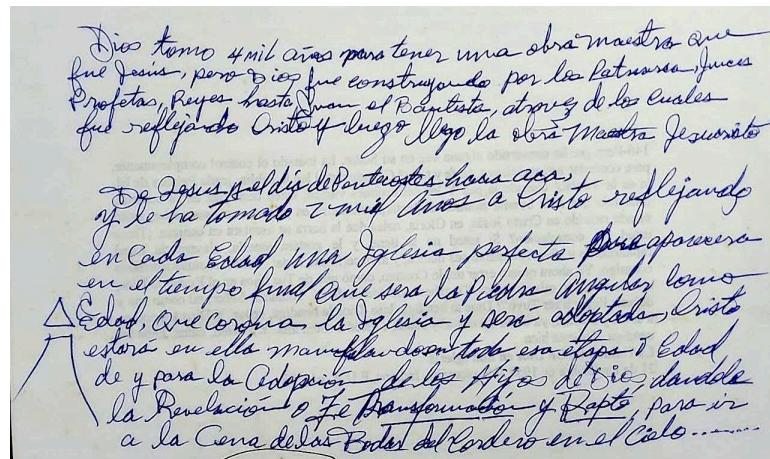 Dios tomo 4 mil años para tener una obra maestra que
fue Jesús, pero Dios fue construyendo por los Patriarca, Jueces
Profetas, Reyes hasta Juan el Bautista, atravez de los cuales
fue reflejando Cristo y luego llego la obra Maestra Jesucristo
De Jesus y el dia de Pentecostes hacia aca,
y le ha tomado 2 mil Años a Cristo reflejando
en Cada Edad una Iglesia perfecta que aparecera
en el tiempo final que sera la Piedra Angular como
Edad, que corona la Iglesia y será adoptada, Cristo
estará en ella en toda esa etapa ó Edad
de y para la Adopción de los Hijos de Dios, dandole
la Revelación o Fe Transformación y Rapto, para ir
a la Cena de las Bodas del Cordero en el Cielo.......